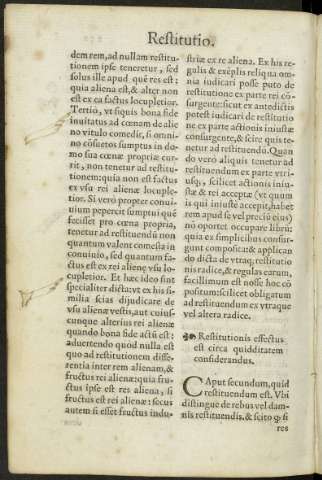 Restitutio.
dem rem, ad nullam restitu
tionem ipse teneretur, sed
solus ille apud quē res est:
quia aliena est, & alter non
est ex ea factus locupletior.
Tertio, vt siquis bona fide
inuitatus ad cœnam de alie
no vitulo comedit, si omni-
no cōsuetos sumptus in do-
mo sua cœnæ propriæ cur-
rit, non tenetur ad restitu-
tionem: quia non est factus
ex vsu rei alienæ locuple-
tior. Si verò propter conui-
uium pepercit sumptui quē
fecisset pro cœna propria,
tenetur ad restituendū non
quantum valent comesta in
conuiuio, sed quantum fa-
ctus est ex rei alienę vsu lo-
cupletior. Et hæc ideo sint
specialiter dicta: vt ex his si-
milia scias dijudicare de
vsu alienæ vestis, aut cuius-
cunque alterius rei alienæ
quando bona fide actū est:
aduertendo quòd nulla est
quo ad restitutionem diffe-
rentia inter rem alienam, &
fructus rei alienæ: quia fru-
ctus ipse est res aliena, si
fructus est rei alienæ: secus
autem si esset fructus indu-
striæ ex re aliena. Ex his re-
gulis & exēplis reliqua om-
nia iudicari posse puto de
restitutione ex parte rei cō-
surgente: sicut ex antedictis
potest iudicari de restitutio
ne ex parte actionis iniustæ
consurgente, & scire quis te-
netur ad restituendū. Quan
do verò aliquis tenetur ad
restituendum ex parte vtri-
usq;, scilicet actionis iniu-
stæ & rei acceptæ (vt quum
is qui iniustè accepit, habet
rem apud se vel preciū eius)
nō oportet occupare librū:
quia ex simplicibus consur-
gunt composita: & applican
do dicta de vtraq; restitutio
nis radice, & regulas earum,
facillimum est nosse hoc cō
positum: scilicet obligatum
ad restituendum ex vtraque
vel altera radice.
Restitutionis effectus
est circa quidditatem
considerandus.
CAput secundum, quid
restituendum est. Vbi
distingue de rebus vel dam-
nis restituendis. & scito ꝙ si
res